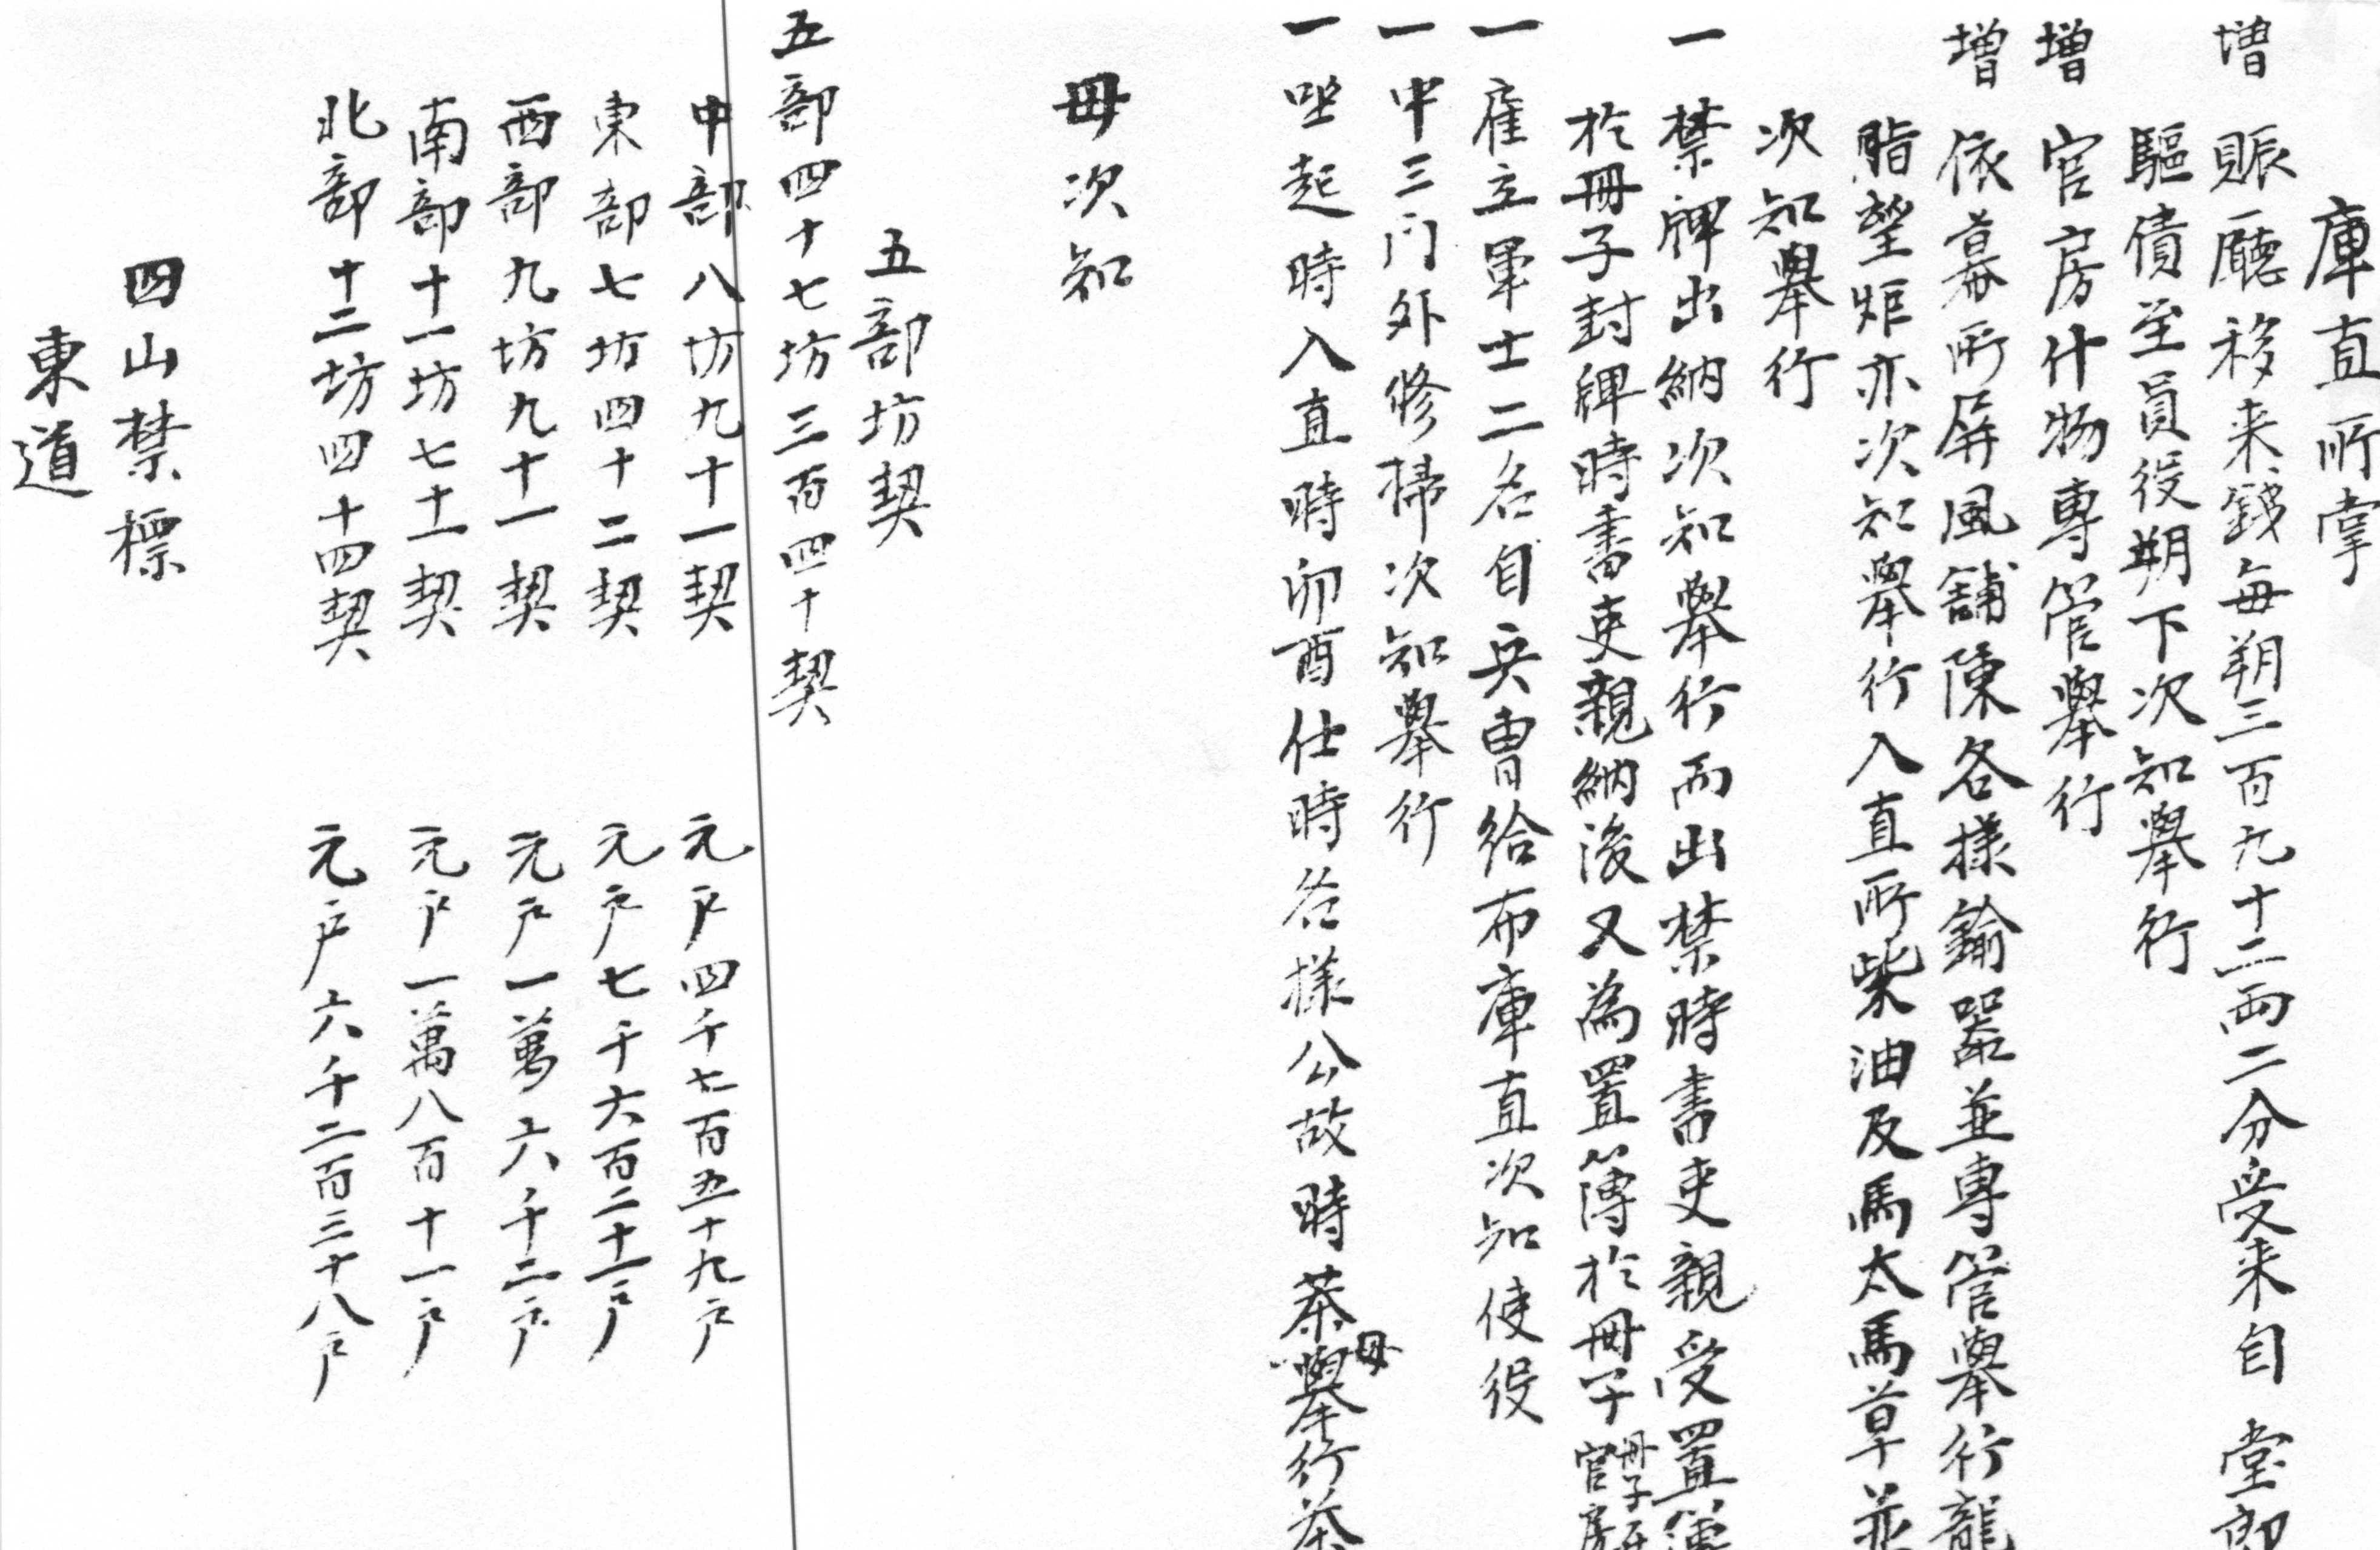 庫直所掌
增 賑廳移来錢每朔三百九十二兩二分受来自 堂郎
驅債至員役朔下次知舉行
增 官房什物專管舉行
增 依幕所屏風舖陳各樣鍮器並專管舉行龍
脂望炬亦次知舉行入直所柴油及馬太馬草並
次知舉行
一 禁牌出納次知舉行而出禁時書吏親受置簿
於冊子封牌時書吏親納後又為置簿於冊子 冊子在 官房
一 雇立軍士二名自兵曹給布庫直次知使役
一 中三门外修掃次知舉行
一 坐起時入直時卯酉仕時各樣公故時茶母舉行茶
母次知
五部坊契
五部四十七坊三百四十契
中部八坊九十一契 元户四千七百五十九户
東部七坊四十二契 元户七千六百二十一户
西部九坊九十一契 元户一萬六千二户
南部十一坊七十一契 元户一萬八百十一户
北部十二坊四十四契 元户六千二百三十八户
四山禁標
東道